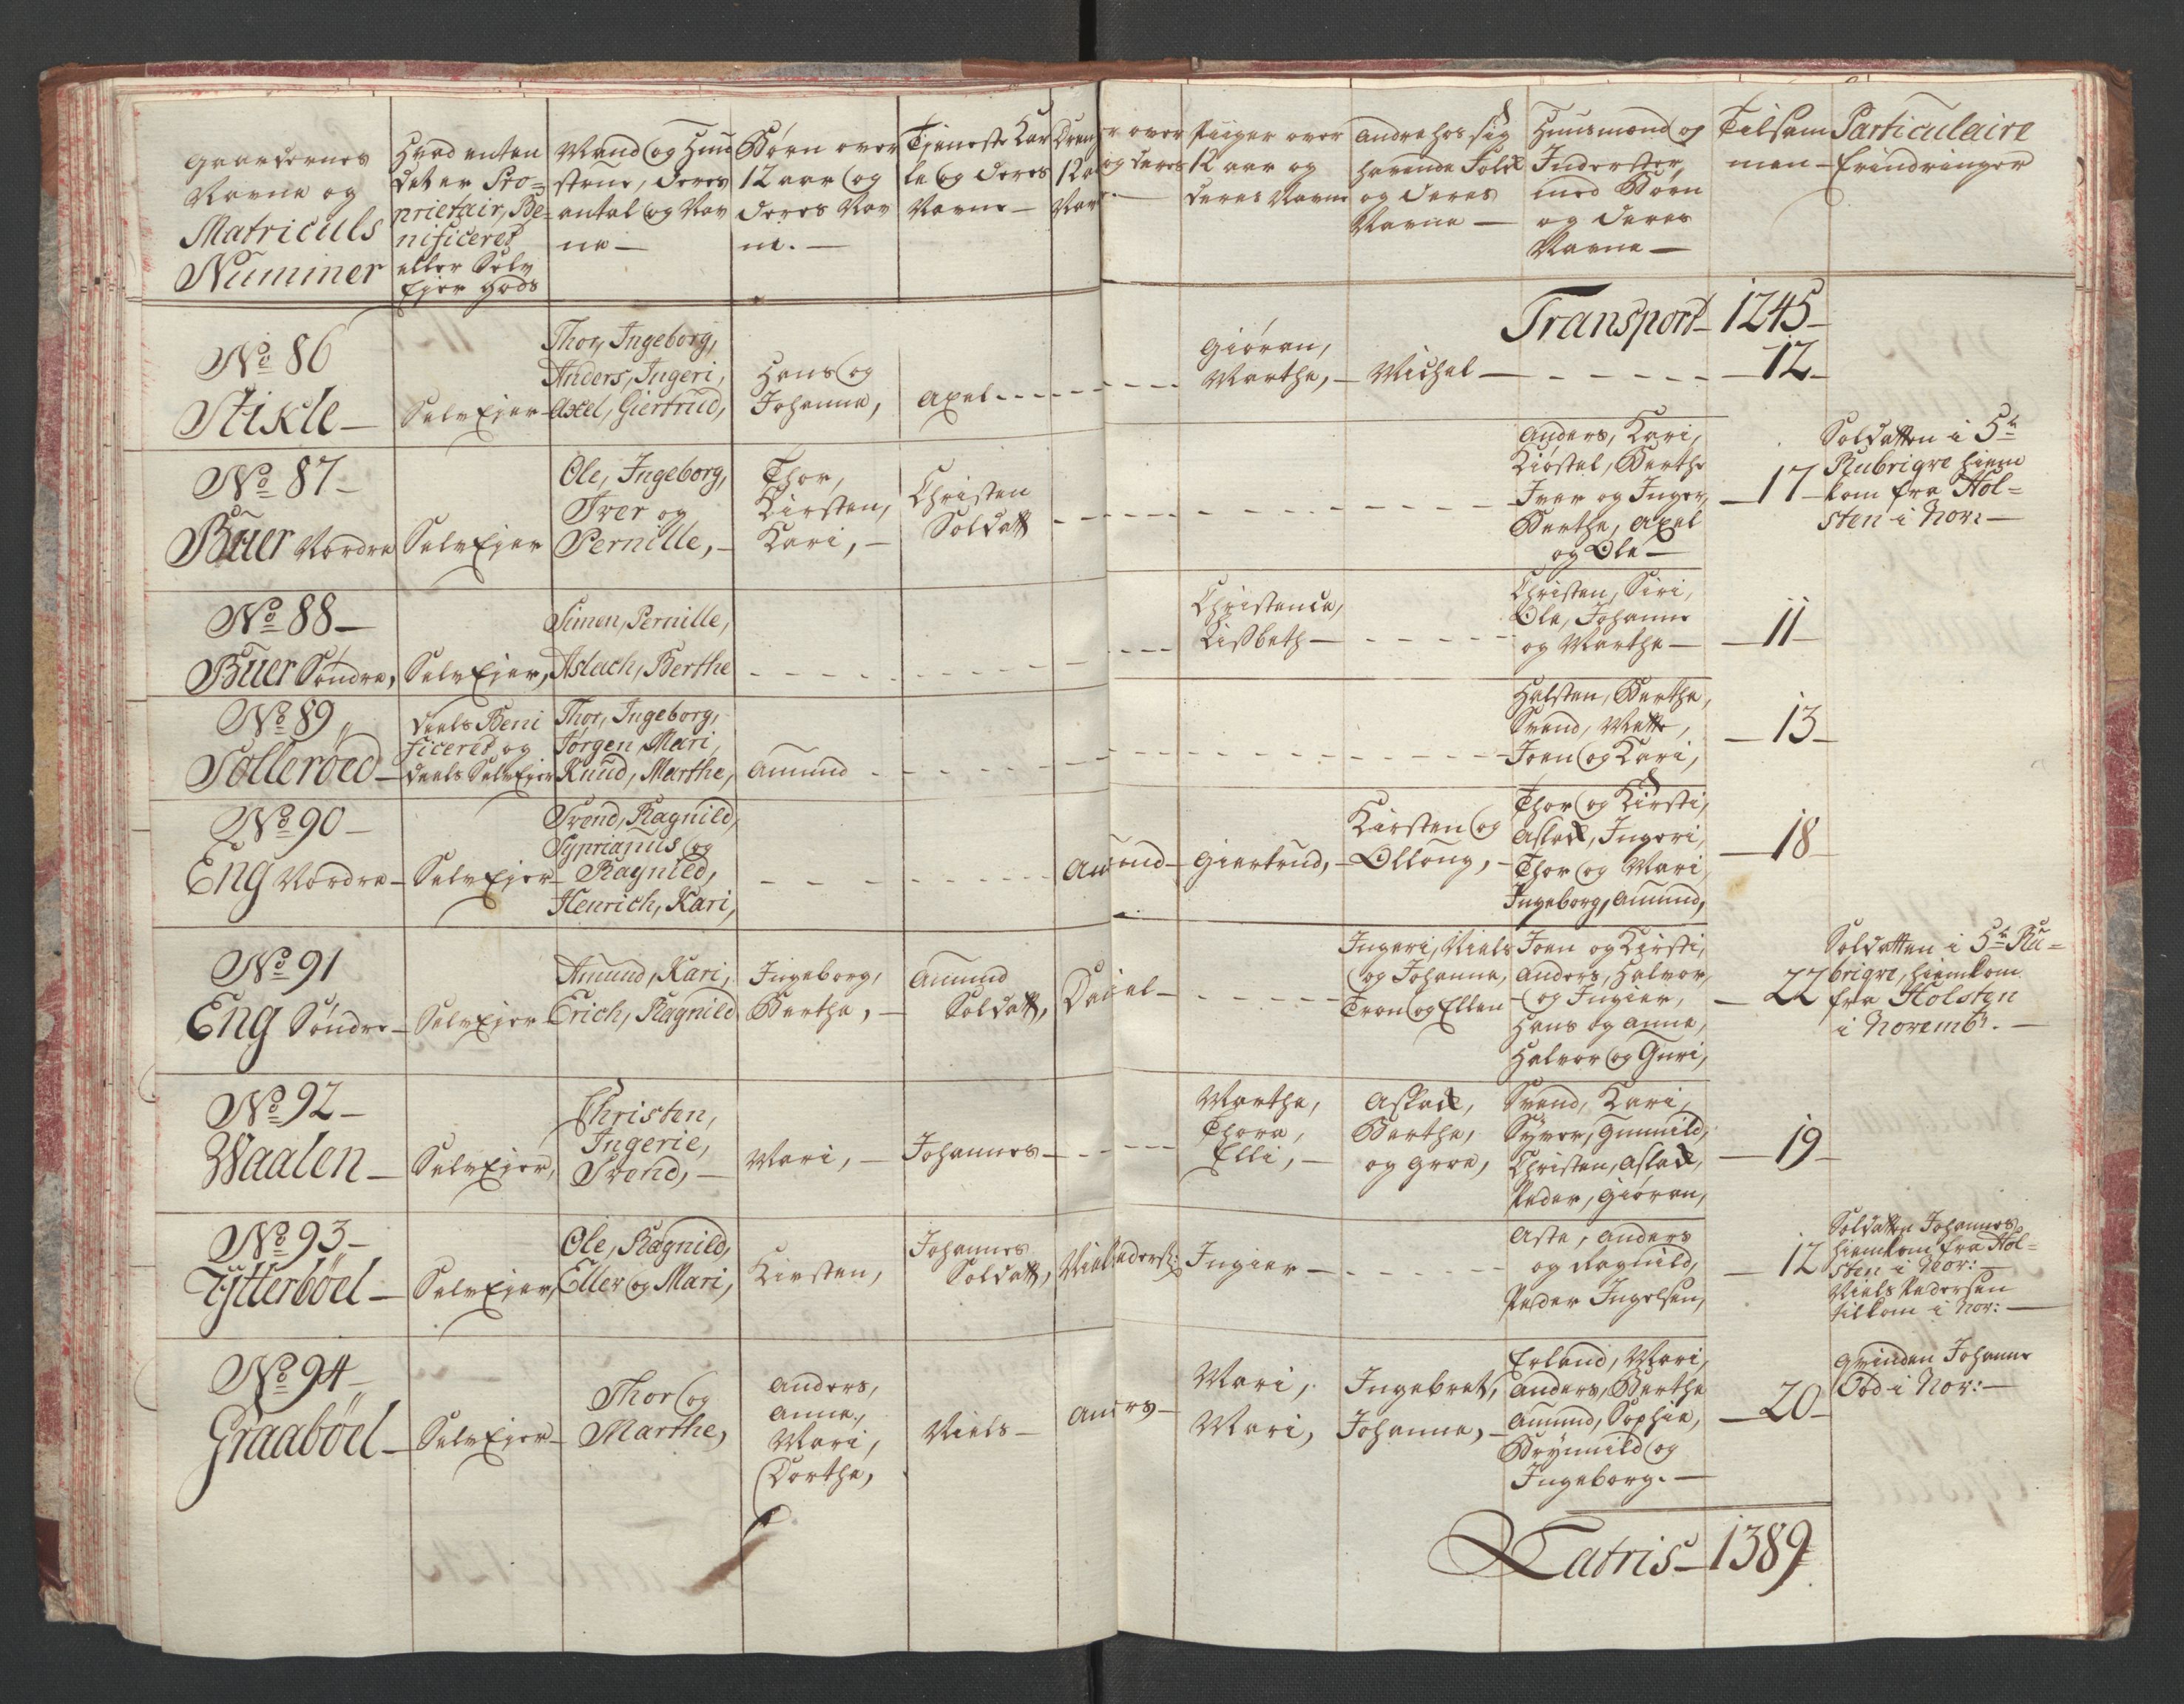 Gaardernes
Navne og
Matriculs
Nummer
Hvad enten
det er Pro=
prietair, Be-
nificeret
eller Selv
Ejer Gods
Mand og Huu
strue, deres
antal og Nav
ne —
Børn over
12 aar og
deres Nav
ne. —
Tjeneste Kar
le og deres
Navne —
Dren
12 a
Nav
r over
og deres
Piiger over
12 aar og
deres Navne
Andre hos sig
havende Folk
og deres
Navne —
Huusmænd og
Inderster,
med Børn
og deres
Navne —
Tilsam
men —
Particulaire
Erindringer
Transport — 1245 —
No 86
Stikle —
SelvEjer —
Thor, Ingeborg,
Anders, Ingeri,
Axel, Giertrud,
Hans og
Johanne,
Axel
Giøran,
Marthe, —
Michel —
— 12 —
No 87 —
Büer Nordre
SelvEjer
Ole, Ingeborg,
Iver og
Pernille, —
Thor,
Kirsten,
Kari, —
Christen
Soldatt
Anders, Kari,
Kiøstel, Berthe
Iver og Inger,
Berthe, Axel
og Ole —
— 17 —
Soldatten i 5te
Rubrique hiem
kom fra Hol=
sten i Nov: —
No 88 —
Büer Søndre,
SelvEjer,
Simen, Pernille,
Aslach, Berthe
Christence,
Lisbeth —
Christen, Siri,
Ole, Johanne
og Marthe —
— 11 —
No 89,,
Sollerøed —
deels Beni
ficeret og
deels SelvEjer
Thor, Ingeborg,
Jørgen, Mari,
Knud, Marthe,
Amund
Halsten, Berthe,
Svend, Mette,
Joen og Kari,
— 13 —
No 90 —
Eng Nordre —
SelvEjer —
Svend, Ragnild,
Syprianus og
Ragnild,
Henrich, Kari,
Amund —
Giertrud, —
Kirsten og
Olloug, —
Thor og Kirsti,
Aslak, Ingeri,
Thor og Mari
Ingeborg, Amund,
— 18 —
No 91
Eng Søndre —
SelvEjer —
Amund, Kari,
Erich, Ragnild
Ingeborg,
Berthe, —
Amund
Soldatt,
Daniel —
Ingeri, Niels
og Johanne,
Tron og Ellen
Joen og Kirsti,
Anders, Halvor,
og Ingier,
Hans og Anne,
Halvor og Guri,
— 22 —
Soldatten i 5te Ru=
brigve, hiemkom
fra Holsten
i Novembr. —
No 92 —
Waalen —
SelvEjer,
Christen,
Ingerie,
Svend, —
Mari, —
Johannes —
Marthe,
Thora,
Elli, —
Aslak,
Berthe,
og Groe,
Svend, Kari,
Syver, Gunnild,
Christen, Aslak,
Peder, Giøran,
— 19 —
No 93 —
Ytterbøel —
SelvEjer,
Ole, Ragnild,
Eller og Mari,
Kirsten,
Johannes
Soldatt,
Niels Peders:
Ingier —
Aste, Anders
og Ragnild,
Peder Ingelsen,
— 12
Soldatten Johannes
hiemkom fra Hol=
sten i Nov: —
Niels Pedersen
tilkom i Nov: —
No 94 —
Graabøel —
SelvEjer —
Thor og
Marthe,
Anders,
Anne,
Mari,
Dorthe,
Niels —
Anders —
Mari,
Mari,
Ingebret,
Johanne, —
Erland, Mari,
Anders, Berthe
Amund, Sophie,
Brynnild og
Ingeborg. —
— 20 —
Qvinden Johanne
død i Nov: —
Latris — 1389